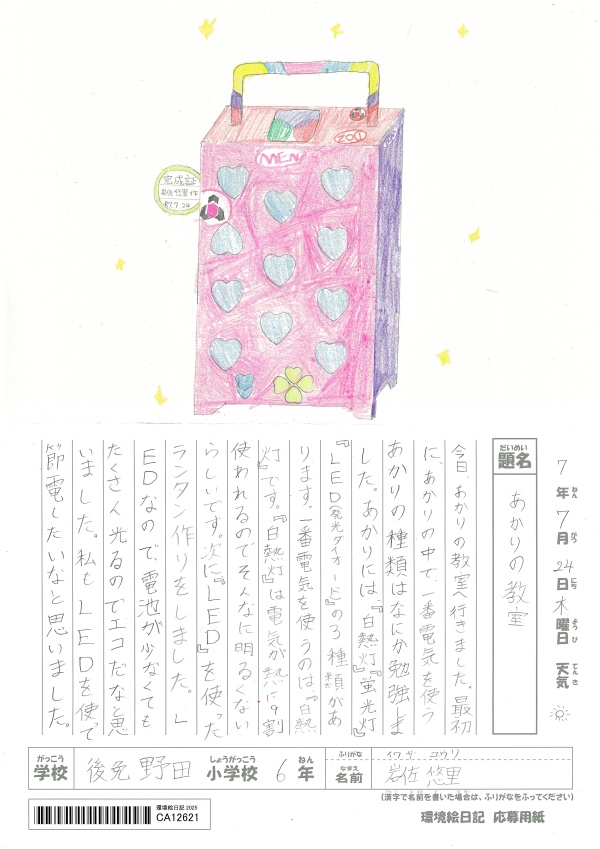 MEN
ZOO
完成証
岩佐悠里作
R7.7.24
7年7月24日木曜日 天気
ねん
がつ
にち
ようび
てんき
だいめい
題名
あかりの教室
今日、あかりの教室へ行きました。最初
に、あかりの中で、一番電気を使う
あかりの種類はなにか勉強しま
した。あかりには、『白熱灯』『蛍光灯』
『LED(発光ダイオード)』の3種類があ
ります。一番電気を使うのは、『白熱
灯』です。『白熱灯』は電気が熱に9割
使われるのでそんなに明るくない
らしいです。次に『LED』を使った
ランタン作りをしました。L
EDなので、電池が少なくても
たくさん光るのでエコだなと思
いました。私もLEDを使って
節電したいなと思いました。
がっこう
学校
後免野田
しょうがっこう
小学校
6
ねん
年
ふりがな
イワサ ユウリ
なまえ
名前
岩佐 悠里
(漢字で名前を書いた場合は、ふりがなをふってください)
環境絵日記 2025
CA12621
環境絵日記 応募用紙